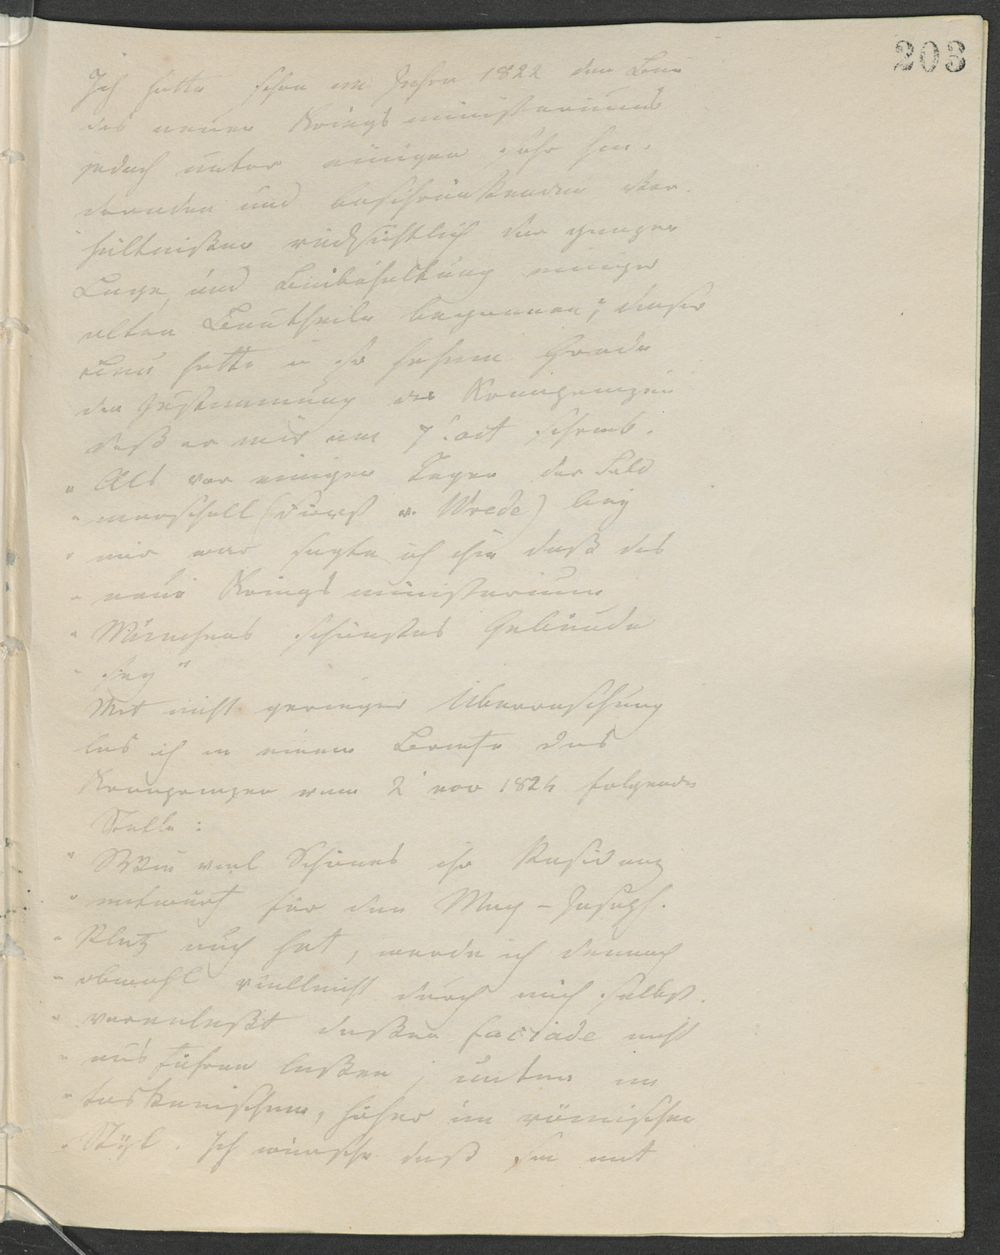 203
Ich hatte schon im Jahre 1822 den Bau
des neuen Kriegsministeriums
jedoch unter einigen sehr hin-
dernden und beschränkenden Ver-
hältnißen rücksichtlich der ganzen
Lage, und Beibehaltung einiger
alten Bautheile begonnen; dieser
Bau hatte in so hohem Grade
die Zustimmung des Kronprinzen
daß er mir am 7. oct schrieb.
„ Als vor einigen Tagen der Feld
„ marschall (Fürst v. Wrede) bey
„ mir war sagte ich ihm daß das
„ neue Kriegsministerium
„ Münchens schönstes Gebäude
„ sey"
Mit nicht geringer Überraschung
las ich in einem Briefe des
Kronprinzen vom 2 nov 1824 folgende
Stelle:
„ Wie viel Schönes ihr Residenz
„ entwurf für den Max-Joseph.
„ Platz auch hat, werde ich dennoch
„ obwohl vielleicht durch mich selbst.
„ veranlaßt deßen facciade nicht
„ ausführen laßen; unten im
„ toskanischen, höher im römischen
„ Styl. Ich wünsche daß Sie mit